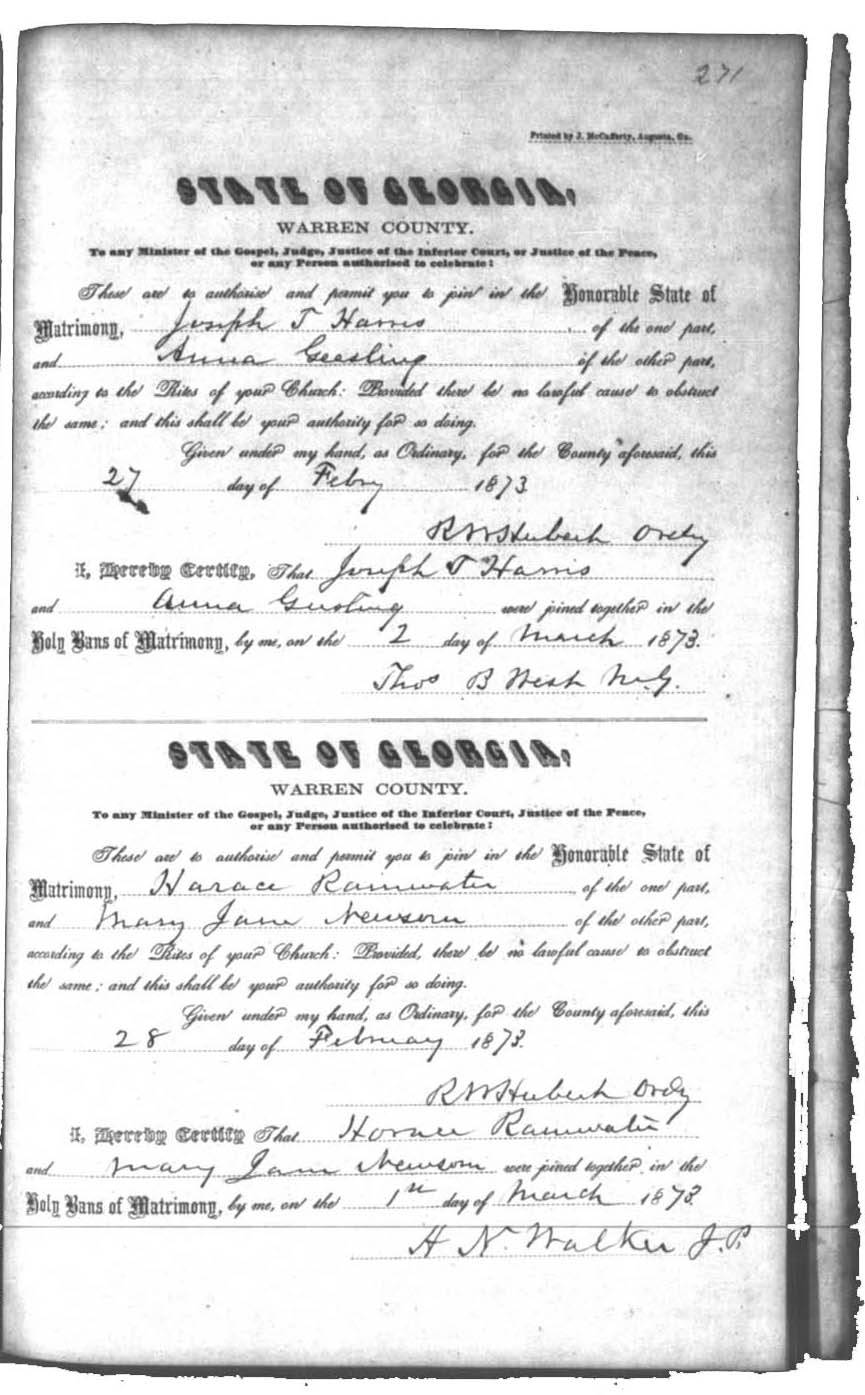 271
Printed by J. McCafferty, Augusta, Ga.
STATE OF GEORGIA,
WARREN COUNTY.
To any Minister of the Gospel, Judge, Justice of the Inferior Court, or Justice of the Peace,
or any Person authorised to celebrate:
These are to authorise and permit you to join in the Honorable State of
Matrimony, Joseph T Harris of the one part,
and Anna Geesling of the other part,
according to the Rites of your Church: Provided there be no lawful cause to obstruct
the same; and this shall be your authority for so doing.
Given under my hand, as Ordinary, for the County aforesaid, this
27 day of Febry 1873
R W Hubert Ordy
I, Hereby Certify, That Joseph T Harris
and Anna Geesling were joined together in the
Holy Bans of Matrimony, by me, on the 2 day of March 1873.
Thos B West M.G.
STATE OF GEORGIA,
WARREN COUNTY.
To any Minister of the Gospel, Judge, Justice of the Inferior Court, Justice of the Peace,
or any Person authorised to celebrate:
These are to authorise and permit you to join in the Honorable State of
Matrimony, Horace Rainwater of the one part,
and Mary Jane Newsom of the other part,
according to the Rites of your Church: Provided, there be no lawful cause to obstruct
the same; and this shall be your authority for so doing.
Given under my hand, as Ordinary, for the County aforesaid, this
28 day of February 1873.
R W Hubert Ordy
I, Hereby Certify That Horace Rainwater
and Mary Jane Newsom were joined together in the
Holy Bans of Matrimony, by me, on the 1st day of March 1873
H N. Walker J.P.